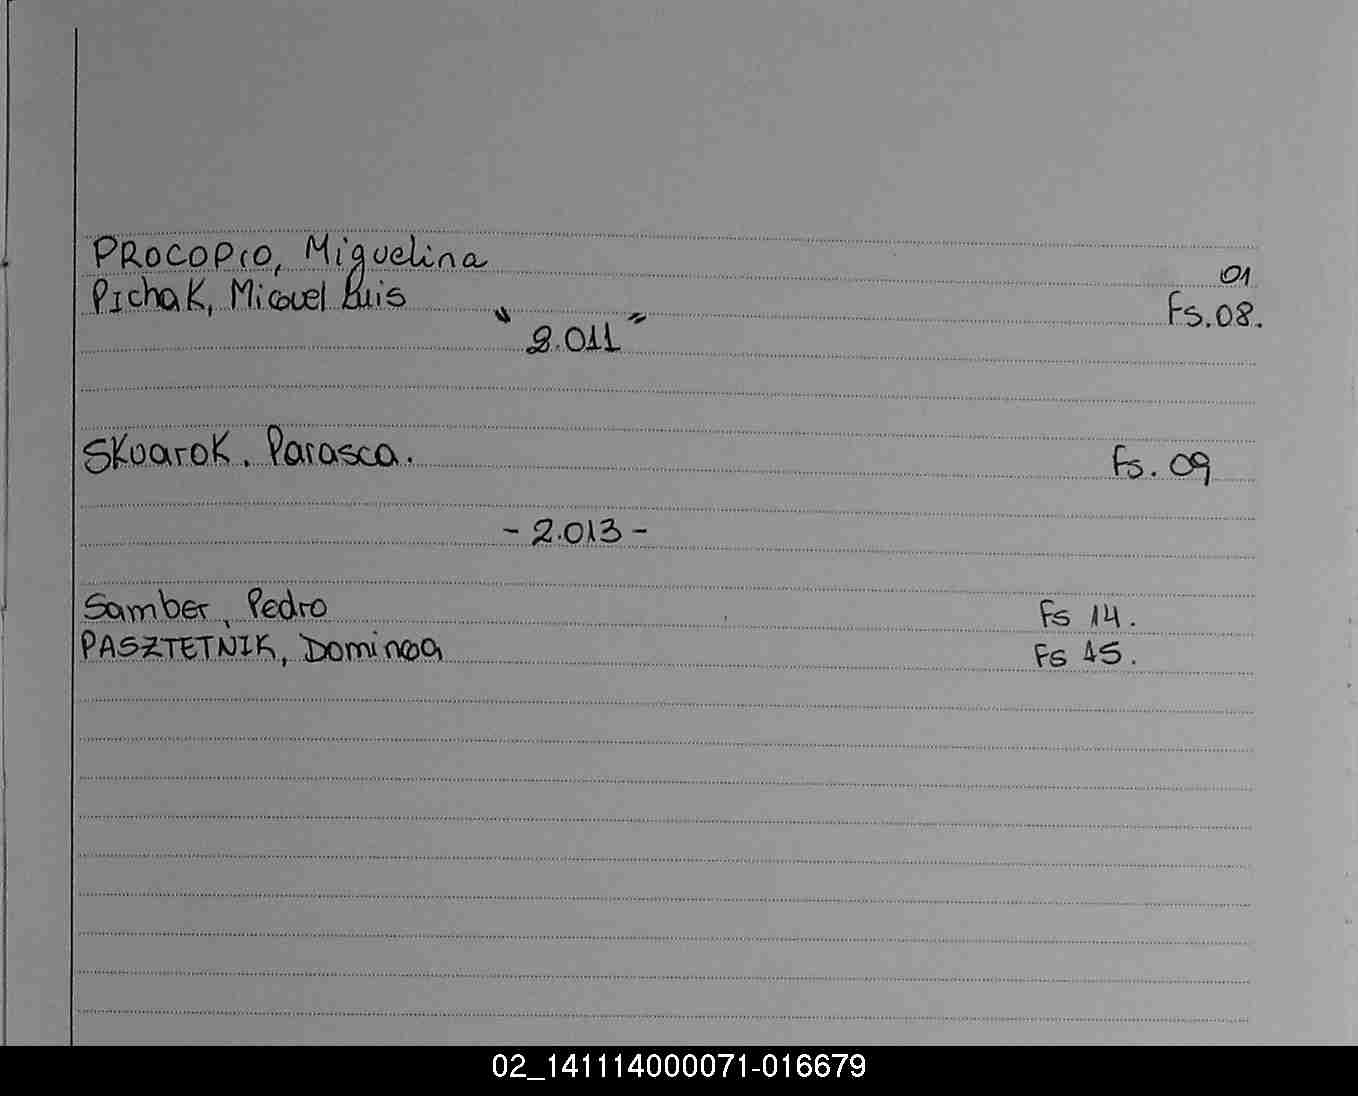 PROCOPIO, Miguelina 01
Pichak, Miguel Luis Fs.08.
" 2.011 "
Skuarok. Parasca. Fs. 09
- 2.013 -
Samber, Pedro Fs 14.
PASZTETNIK, Dominga Fs 15.
02_141114000071-016679